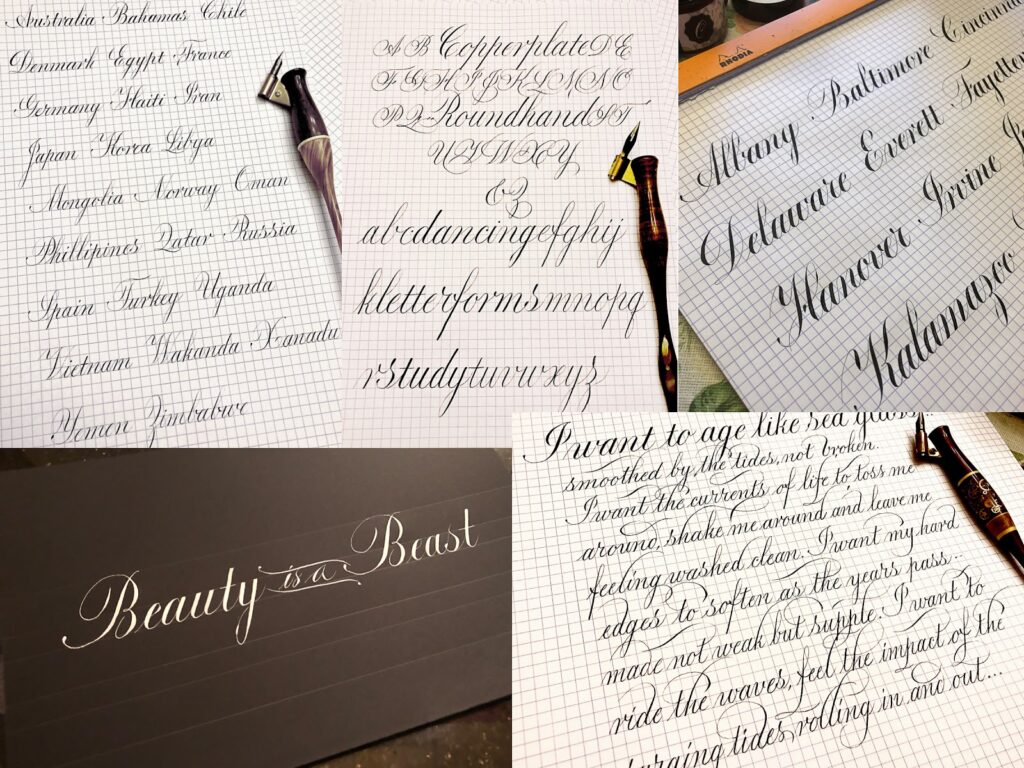 Australia Bahamas Chile
Denmark Egypt France
Germany Haiti Iran
Japan Korea Libya
Mongolia Norway Oman
Phillipines Qatar Russia
Spain Turkey Uganda
Vietnam Wakanda Xanadu
Yemen Zimbabwe
A B Copperplate D E
F G H I J K L M N O
P Q Roundhand S T
U V W X Y
& Z
abcdancingefghij
kletterformsmnopq
rstudytuvwxyz
RHODIA
Albany Baltimore Cincinna
Delaware Everett Fayette
Hanover Irvine
Kalamazoo
Beauty is a Beast
I want to age like sea glass...
smoothed by the tides, not broken.
I want the currents of life to toss me
around, shake me around and leave me
feeling washed clean. I want my hard
edges to soften as the years pass...
made not weak but supple. I want to
ride the waves, feel the impact of the
surging tides rolling in and out...